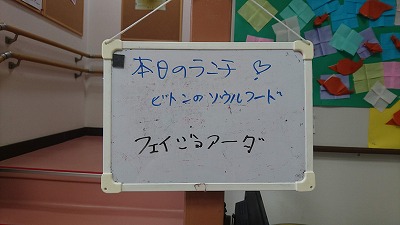 本日のランチ♡
ビトンのソウルフード
フェイジョアーダ